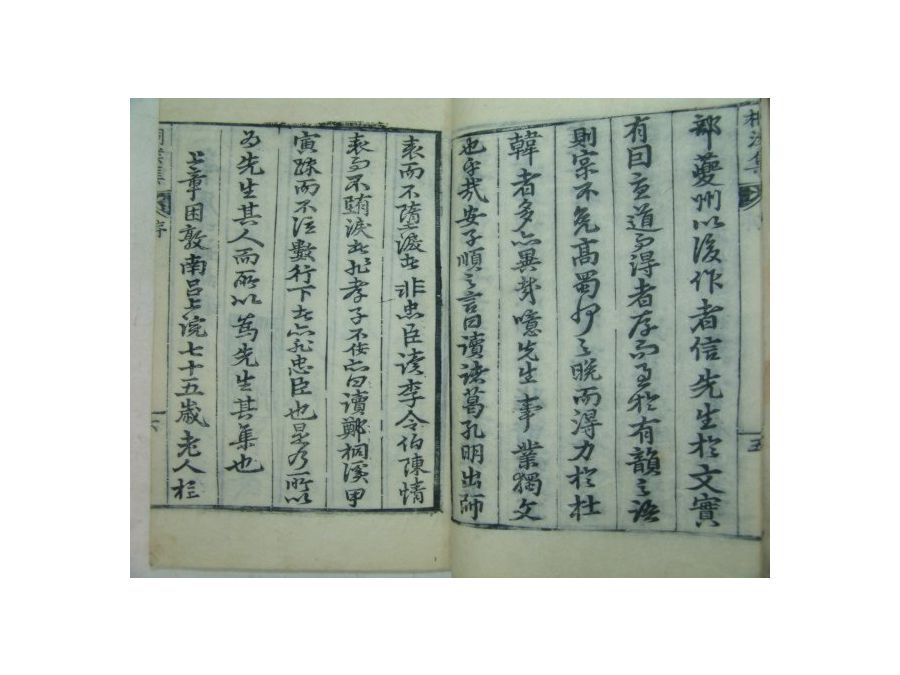 鄙夔州以後作者信先生於文實
有曰意道而得者存而至於有韻之語
則宗不免高蜀州之晚而得力於杜
韓者多亦異哉噫先生事業獨文
也乎哉安子順之言曰讀諸葛孔明出師
表而不墮淚者非忠臣讀李令伯陳情
表而不墮淚者非孝子不佞亦曰讀鄭桐溪甲
寅疏而不泣數行下者亦非忠臣也是乃所以
為先生其人而所以為先生其集也
上章困敦南呂上浣七十五歲老人
桐溪集
序
五
六